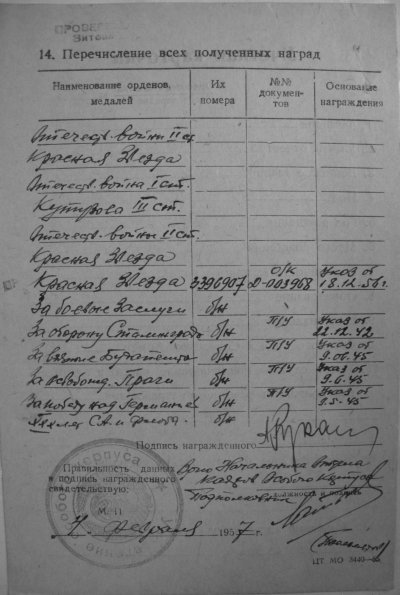 ПРОВЕРЕ
14. Перечисление всех полученных наград
Наименование орденов, медалей | Их номера | №№ документов | Основание награждения
Отечеств. войны II ст.
Красная Звезда
Отечеств. война I ст.
Кутузова III ст.
Отечеств. войны II ст.
Красная Звезда
Красная Звезда 3396907 О/К Д-003968 Указ от 18.12.56г.
За боевые Заслуги б/н
За оборону Сталинграда б/н П/У Указ от 22.12.42
За взятие Будапешта б/н П/У Указ от 9.06.45
За освобожд. Праги б/н П/У Указ от 9.6.45
За победу над Германией б/н Указ от 9.5.45
XXX лет С.А. и флота б/н
Подпись награжденного
Правильность данных
и подпись награжденного
свидетельствую:
Начальника отдела
кадров Особого корпуса
Подполковник
должность и подпись
М. П.
февраля 1957 г.
УГ. МО